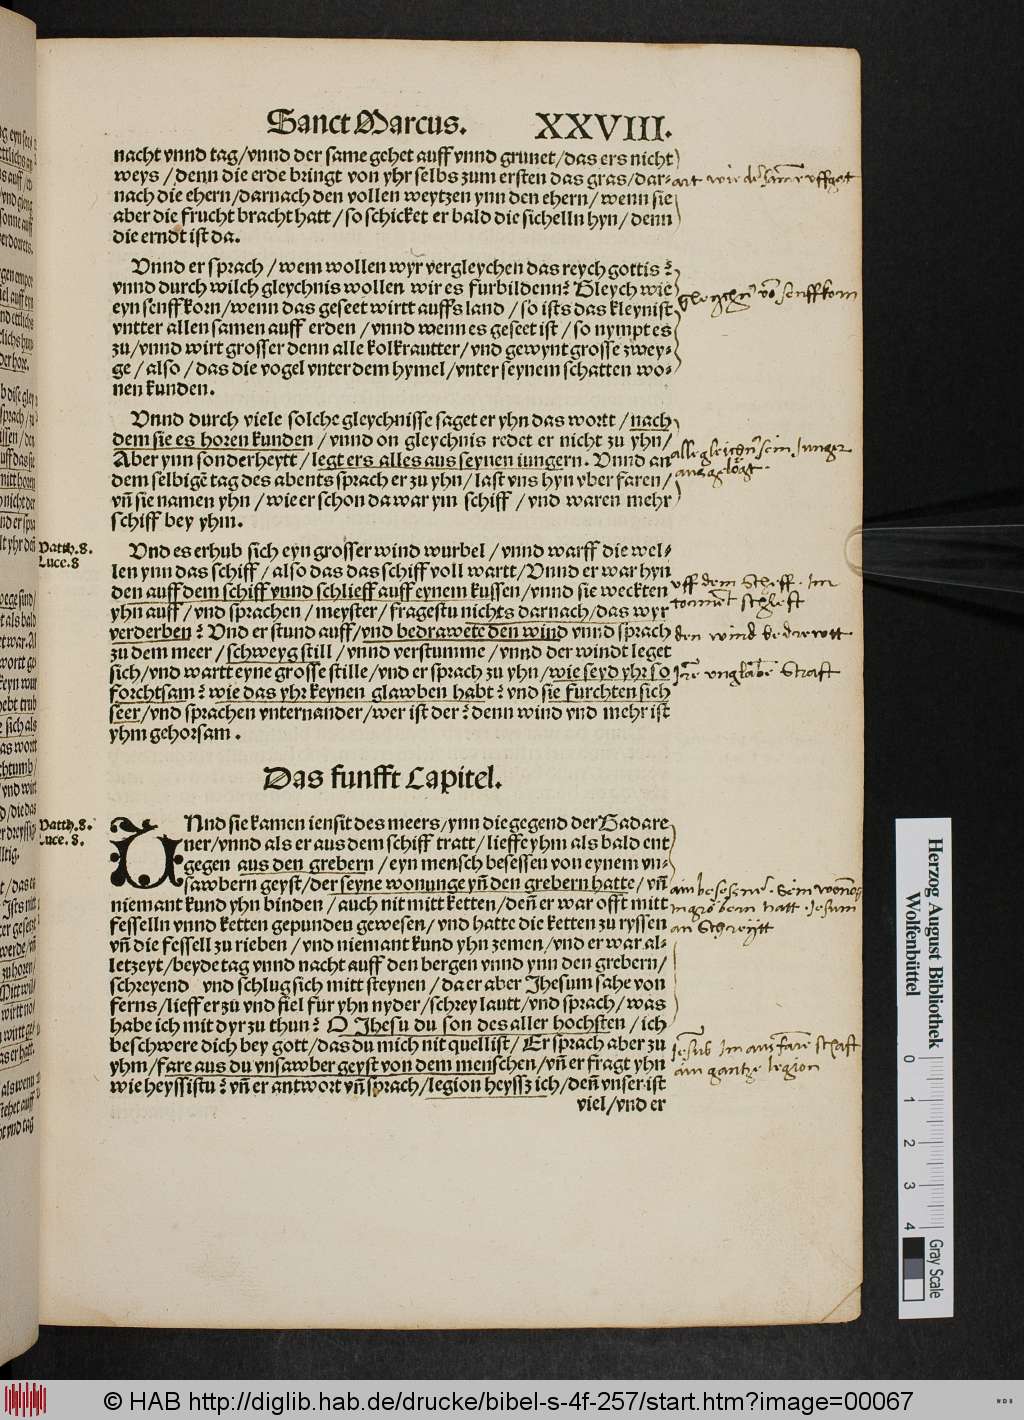 Sanct Marcus. XXVIII.
nacht vnnd tag/vnnd der same gehet auff vnnd grunet/das ers nicht
weys/denn die erde bringt von yhr selbs zum ersten das gras/dar-
nach die ehern/darnach den vollen weytzen ynn den ehern/wenn sie
aber die frucht bracht hatt/so schicket er bald die sichelln hyn/denn
die erndt ist da.
Vnnd er sprach/wem wollen wyr vergleychen das reych gottis?
vnnd durch wilch gleychnis wollen wir es furbildenn? Gleych wie
eyn senff korn/wenn das geseet wirtt auffs land/so ists das kleynist
vntter allen samen auff erden/vnnd wenn es geseet ist/so nympt es
zu/vnnd wirt grosser denn alle kolkrautter/vnd gewynt grosse zwey-
ge/also/das die vogel vnter dem hymel/vnter seynem schatten wo-
nen kunden.
Vnnd durch viele solche gleychnisse saget er yhn das wortt/nach
dem sie es horen kunden/vnnd on gleychnis redet er nicht zu yhn/
Aber ynn sonderheytt/legt ers alles aus seynen iungern. Vnnd an
dem selbigē tag des abents sprach er zu yhn/last vns hyn vber faren/
vn̄ sie namen yhn/wie er schon da war ym schiff/vnd waren mehr
schiff bey yhm.
Matth. 8.
Luce. 8
Vnd es erhub sich eyn grosser wind wurbel/vnnd warff die wel-
len ynn das schiff/also das das schiff voll wartt/Vnnd er war hyn
den auff dem schiff vnnd schlieff auff eynem kussen/vnnd sie weckten
yhn auff/vnd sprachen/meyster/fragestu nichts darnach/das wyr
verderben? Vnd er stund auff/vnd bedrawete den wind vnnd sprach
zu dem meer/schweyg still/vnnd verstumme/vnnd der windt leget
sich/vnd wartt eyne grosse stille/vnd er sprach zu yhn/wie seyd yhr so
forchtsam? wie das yhr keynen glawben habt? vnd sie furchten sich
seer/vnd sprachen vnternander/wer ist der? denn wind vnd mehr ist
yhm gehorsam.
gleychn von senffkorn
alle gleichn sein Junger
ausgelegt.
vff dem Schiff. Im
schleft
den wind bedrewtt
vnglabē Straft
Das funfft Capitel.
Matth. 8.
Luce. 8.
VNnd sie kamen iensit des meers/ynn die gegend der Gadare
ner/vnnd als er aus dem schiff tratt/lieffe yhm als bald ent
gegen aus den grebern/eyn mensch besessen von eynem vn-
sawbern geyst/der seyne wonunge yn̄ den grebern hatte/vn̄
niemant kund yhn binden/auch nit mitt ketten/den̄ er war offt mitt
fesselln vnnd ketten gepunden gewesen/vnd hatte die ketten zu ryssen
vn̄ die fessell zu rieben/vnd niemant kund yhn zemen/vnd er war al-
letzeyt/beyde tag vnnd nacht auff den bergen vnnd ynn den grebern/
schreyend vnd schlug sich mitt steynen/da er aber Jhesum sahe von
ferns/lieff er zu vnd fiel für yhn nyder/schrey lautt/vnd sprach/was
habe ich mit dyr zu thun? O Jhesu du son des aller hochsten/ich
beschwere dich bey gott/das du mich nit quellist/Er sprach aber zu
yhm/fare aus du vnsawber geyst von dem menschen/vn̄ er fragt yhn
wie heyssistu? vn̄ er antwort vn̄ sprach/legion heyssz ich/den̄ vnser ist
viel/vnd er
ain besessener. Sein
hatt. Jesum
an Schreijtt
Jesus Im auß fare schaft
ain gantze legion
Herzog August Bibliothek
Wolfenbüttel
0 1 2 3 4
Gray Scale
© HAB http://diglib.hab.de/drucke/bibel-s-4f-257/start.htm?image=00067